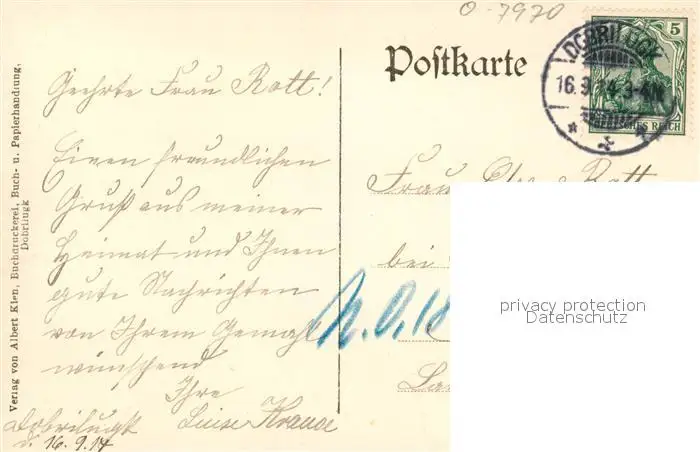 O-7970
Postkarte
DOBRILUGK
16.9.14. 3-4N
5
DEUTSCHES REICH
Geehrte Frau Rott!
Einen freundlichen
Gruß aus meiner
Heimat und Ihnen
gute Nachrichten
von Ihrem Gemahl
wünschend
Ihre
Luise Krause
Dobrilugk
d. 16.9.14
Frau Rott
bei
N.O.18
Verlag von Albert Klen, Buchdruckerei, Buch- u. Papierhandlung,
Dobrilugk
privacy protection
Datenschutz